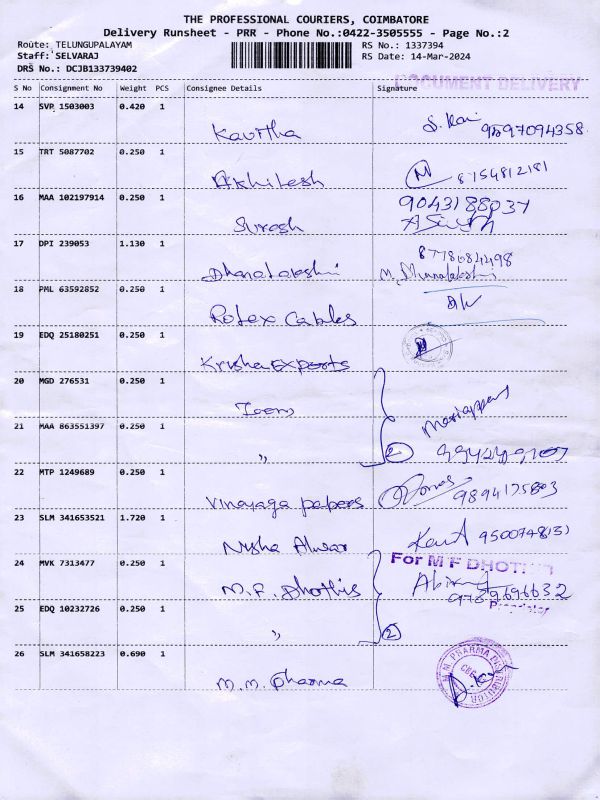 THE PROFESSIONAL COURIERS, COIMBATORE
Delivery Runsheet - PRR - Phone No.:0422-3505555 - Page No.:2
Route: TELUNGUPALAYAM RS No.: 1337394
Staff: SELVARAJ RS Date: 14-Mar-2024
DRS No.: DCJB133739402
DOCUMENT DELIVERY
S No Consignment No Weight PCS Consignee Details Signature
14 SVP 1503003 0.420 1
Kavitha
15 TRT 5087702 0.250 1
Akhilesh 8754812181
16 MAA 102197914 0.250 1
Suresh
17 DPI 239053 1.130 1
Dhanalakshmi 8778084498
18 PML 63592852 0.250 1
Rotex Cables
19 EDQ 25180251 0.250 1
Krisha Exports
20 MGD 276531 0.250 1
Mariappan
21 MAA 863551397 0.250 1
" 2
22 MTP 1249689 0.250 1
Vinayaga papers 9894175803
23 SLM 341653521 1.720 1
Nisha Alwar
24 MVK 7313477 0.250 1
For M F DHOTIS
M.F. Dhothis 9789696632
Proprietor
25 EDQ 10232726 0.250 1
" 2
26 SLM 341658223 0.690 1
M.M. Pharma
M.M. PHARMA DISTRIBUTOR
CBE